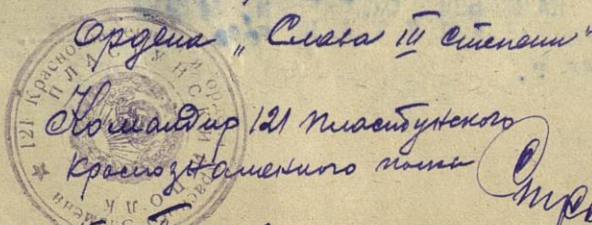 Ордена „Слава III степени"
Командир 121 пластунского
краснознаменного полка
121 Красно
ПЛАСТУНСКИЙ
ПОЛК